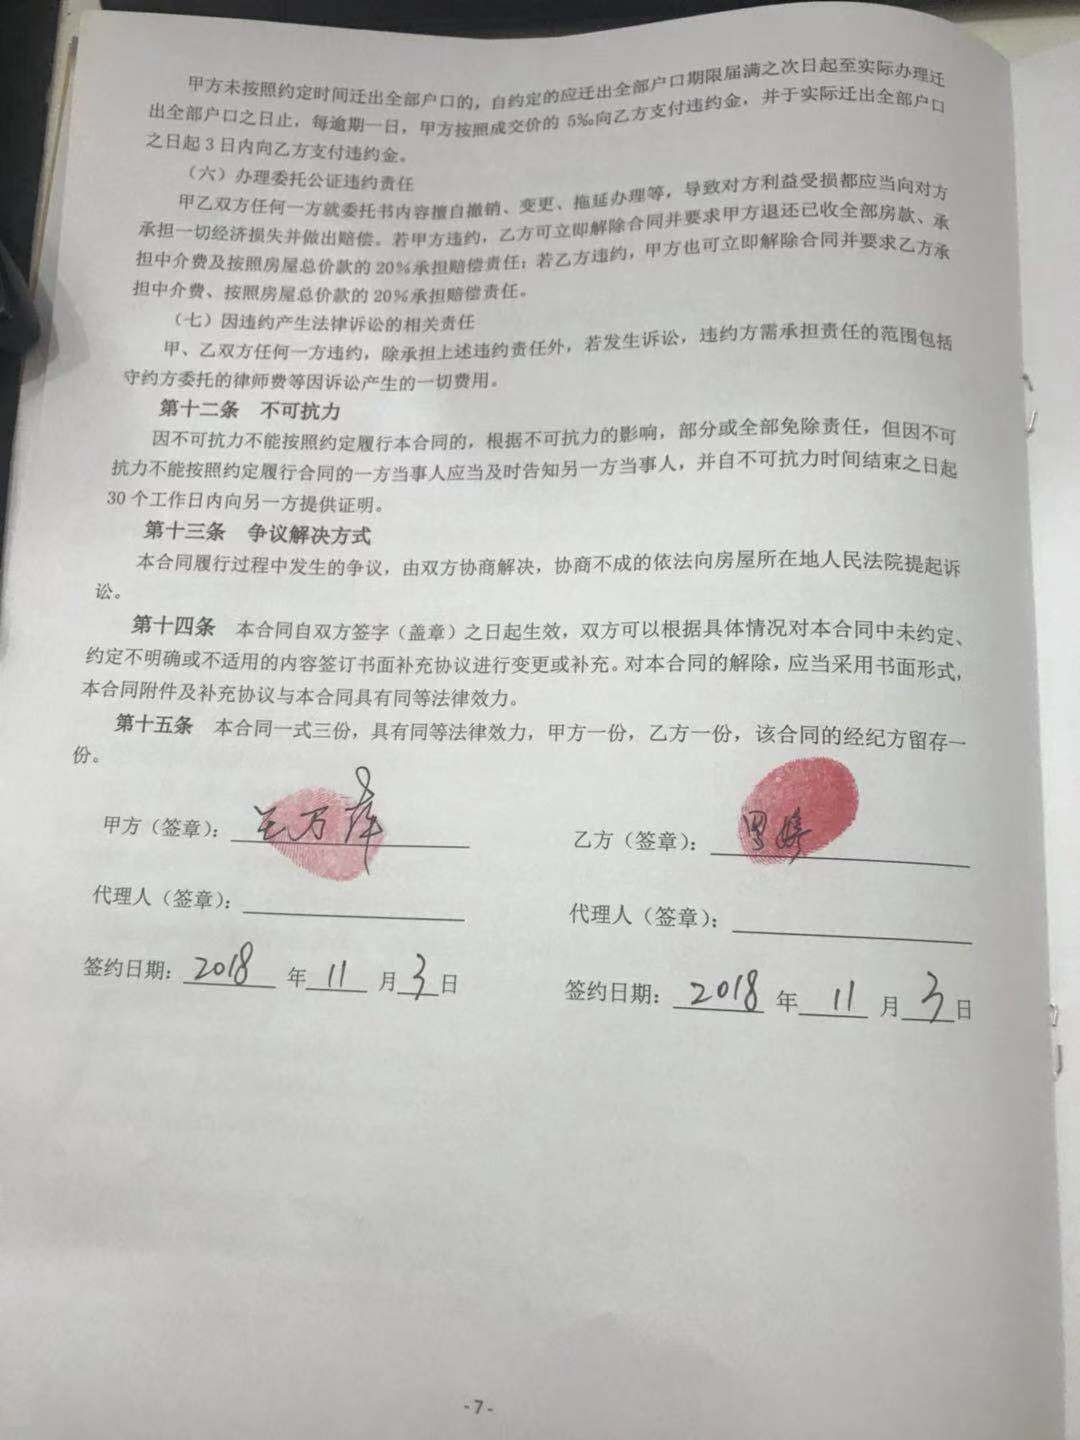 甲方未按照约定时间迁出全部户口的，自约定的应迁出全部户口期限届满之次日起至实际办理迁
出全部户口之日止，每逾期一日，甲方按照成交价的 5‰向乙方支付违约金，并于实际迁出全部户口
之日起 3 日内向乙方支付违约金。
（六）办理委托公证违约责任
甲乙双方任何一方就委托书内容擅自撤销、变更、拖延办理等，导致对方利益受损都应当向对方
承担一切经济损失并做出赔偿。若甲方违约，乙方可立即解除合同并要求甲方退还已收全部房款、承
担中介费及按照房屋总价款的 20%承担赔偿责任；若乙方违约，甲方也可立即解除合同并要求乙方承
担中介费、按照房屋总价款的 20%承担赔偿责任。
（七）因违约产生法律诉讼的相关责任
甲、乙双方任何一方违约，除承担上述违约责任外，若发生诉讼，违约方需承担责任的范围包括
守约方委托的律师费等因诉讼产生的一切费用。
第十二条 不可抗力
因不可抗力不能按照约定履行本合同的，根据不可抗力的影响，部分或全部免除责任，但因不可
抗力不能按照约定履行合同的一方当事人应当及时告知另一方当事人，并自不可抗力时间结束之日起
30 个工作日内向另一方提供证明。
第十三条 争议解决方式
本合同履行过程中发生的争议，由双方协商解决，协商不成的依法向房屋所在地人民法院提起诉
讼。
第十四条 本合同自双方签字（盖章）之日起生效，双方可以根据具体情况对本合同中未约定、
约定不明确或不适用的内容签订书面补充协议进行变更或补充。对本合同的解除，应当采用书面形式，
本合同附件及补充协议与本合同具有同等法律效力。
第十五条 本合同一式三份，具有同等法律效力，甲方一份，乙方一份，该合同的经纪方留存一
份。
甲方（签章）：
乙方（签章）：
代理人（签章）：
代理人（签章）：
签约日期：2018 年 11 月 3 日
签约日期：2018 年 11 月 3 日
- 7 -